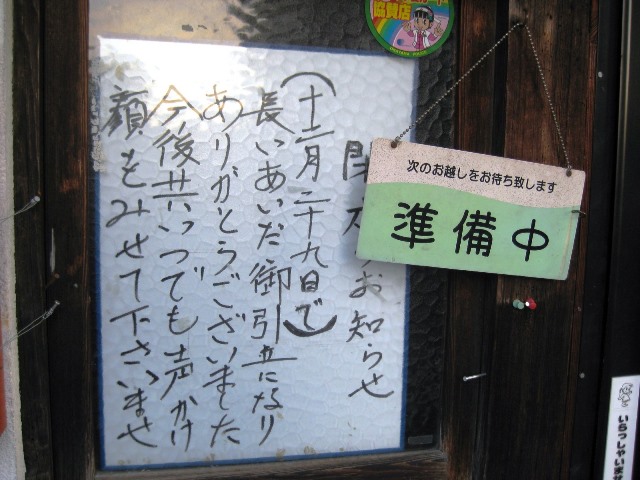 閉店のお知らせ
(十二月二十九日で)
長いあいだ御引立になり
ありがとうございました
今後共いつでも声かけ
顔をみせて下さいませ
次のお越しをお待ち致します
準備中
協賛店
いらっしゃいませ